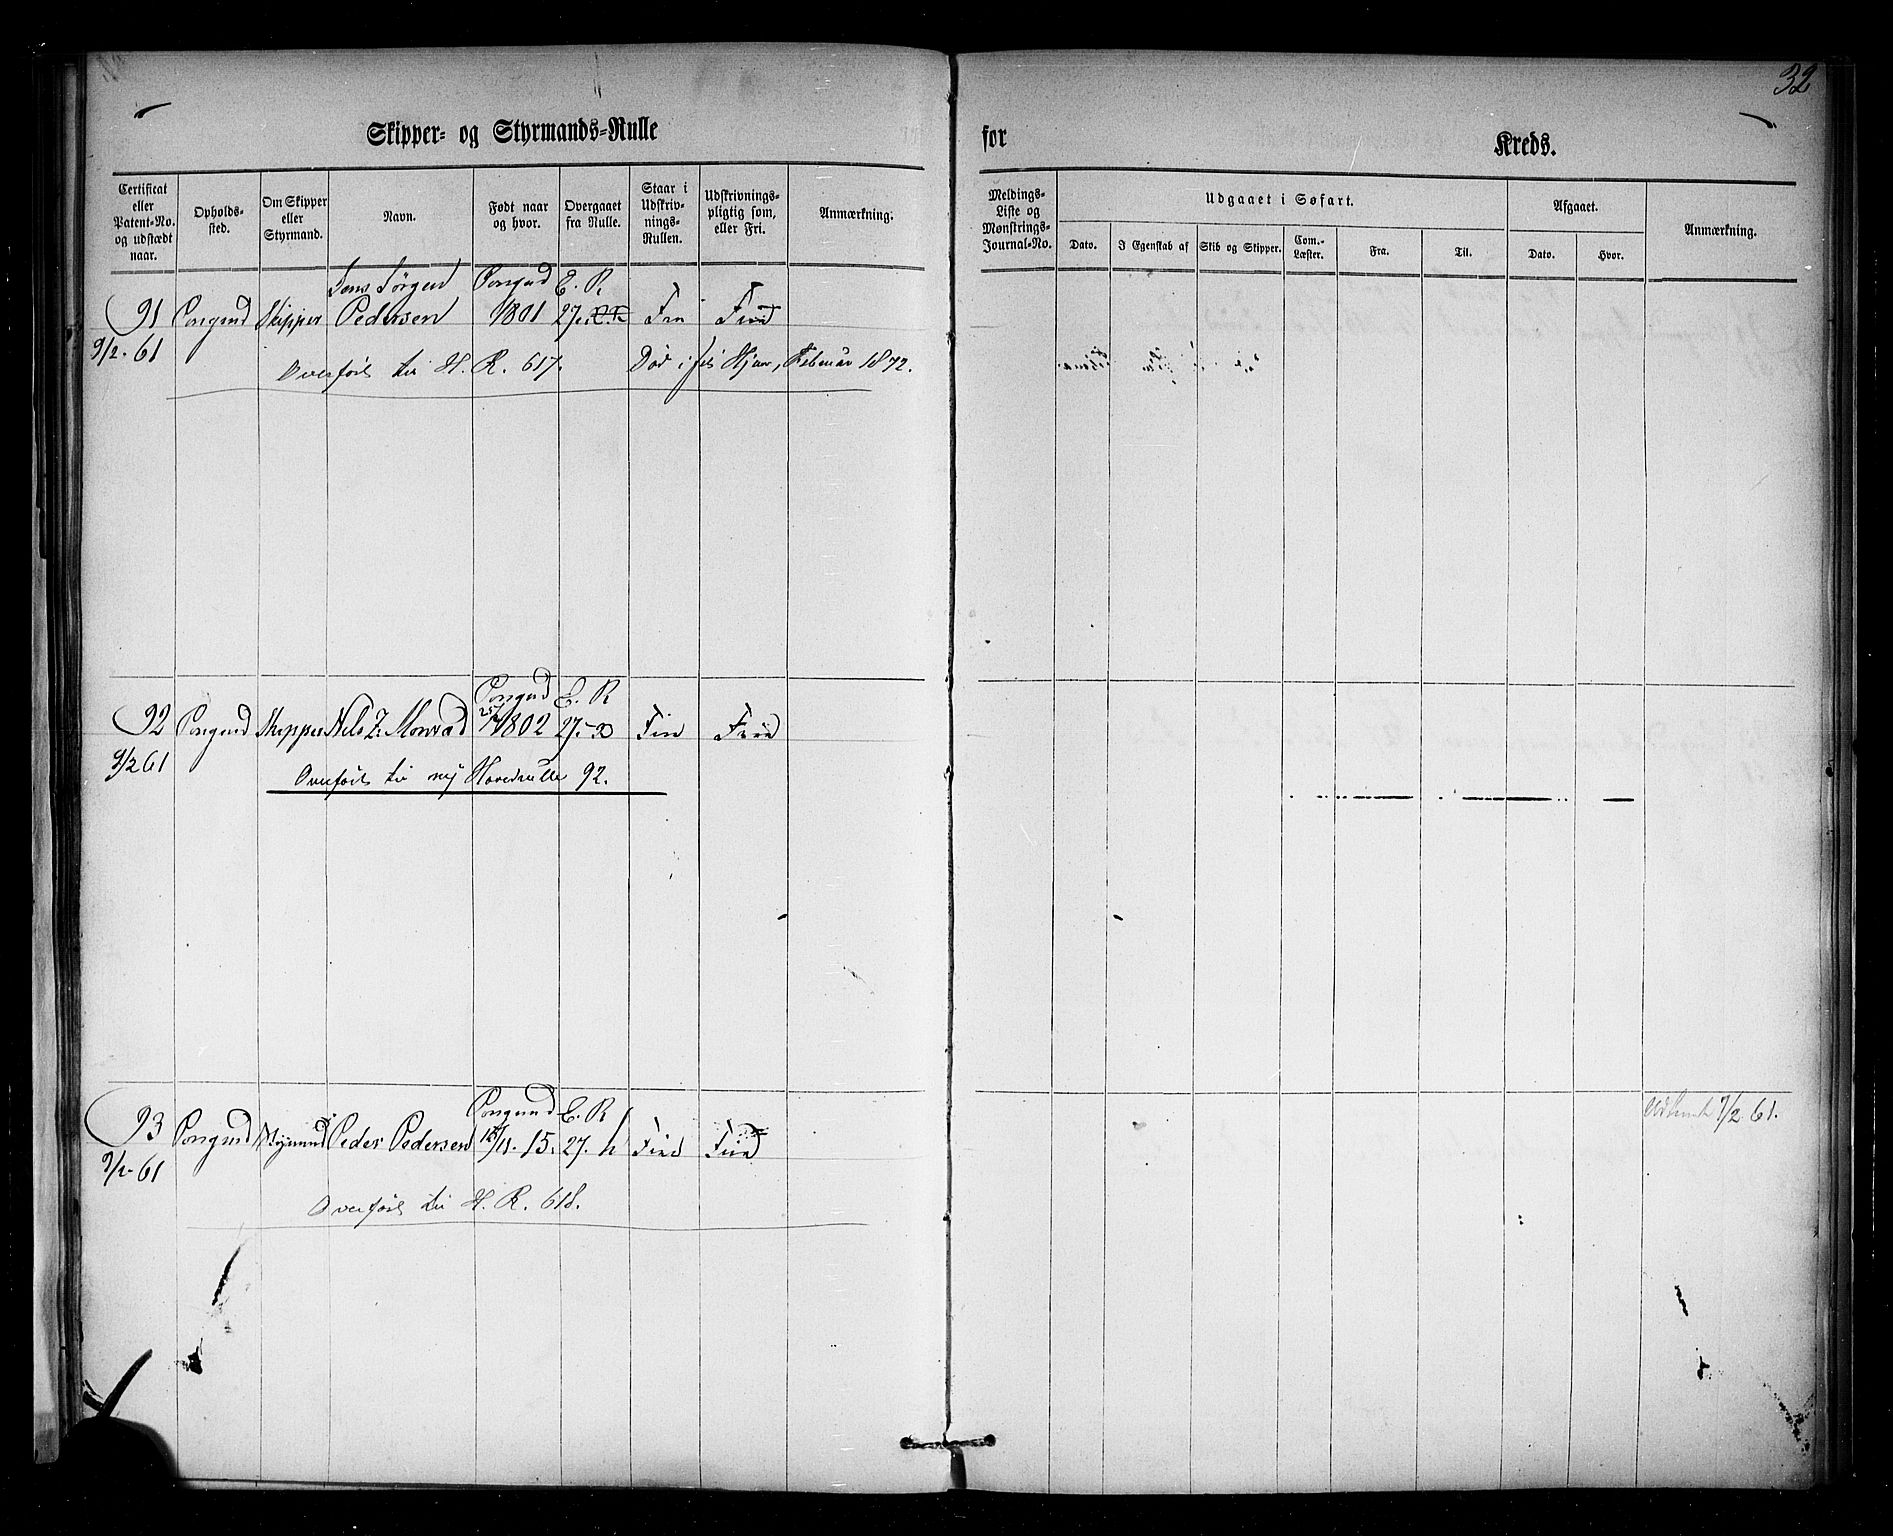 32
Skipper- og Styrmands-Rulle for Kreds.
Certificat eller Patent-No. og udstædt naar.
Opholds-sted.
Om Skipper eller Styrmand.
Navn.
Født naar og hvor.
Overgaaet fra Rulle.
Staar i Udskriv-nings-Rullen.
Udskrivnings-pligtig som, eller Fri.
Anmærkning.
Meldings-Liste og Mønstrings-Journal-No.
Udgaaet i Søfart.
Dato.
I Egenskab af
Skib og Skipper.
Com.-Læster.
Fra.
Til.
Afgaaet.
Dato.
Hvor.
Anmærkning.
Jens Jørgen Porsgrd E. R.
91 Porsgrund Skipper Pedersen 1801 27
9/2 61
Overført til H. R. 617. Død Februar 1872.
Porsgrd E. R
92 Porsgrund Skipper Nils Z. Monrad 1802 27
9/2 61
Overført til ny Hovedrulle 92.
Porsgrund E. R
93 Porsgrund Styrmand Peder Pedersen 11. 15. 27. h
9/2 61
7/2 61.
Overført til H. R. 618.